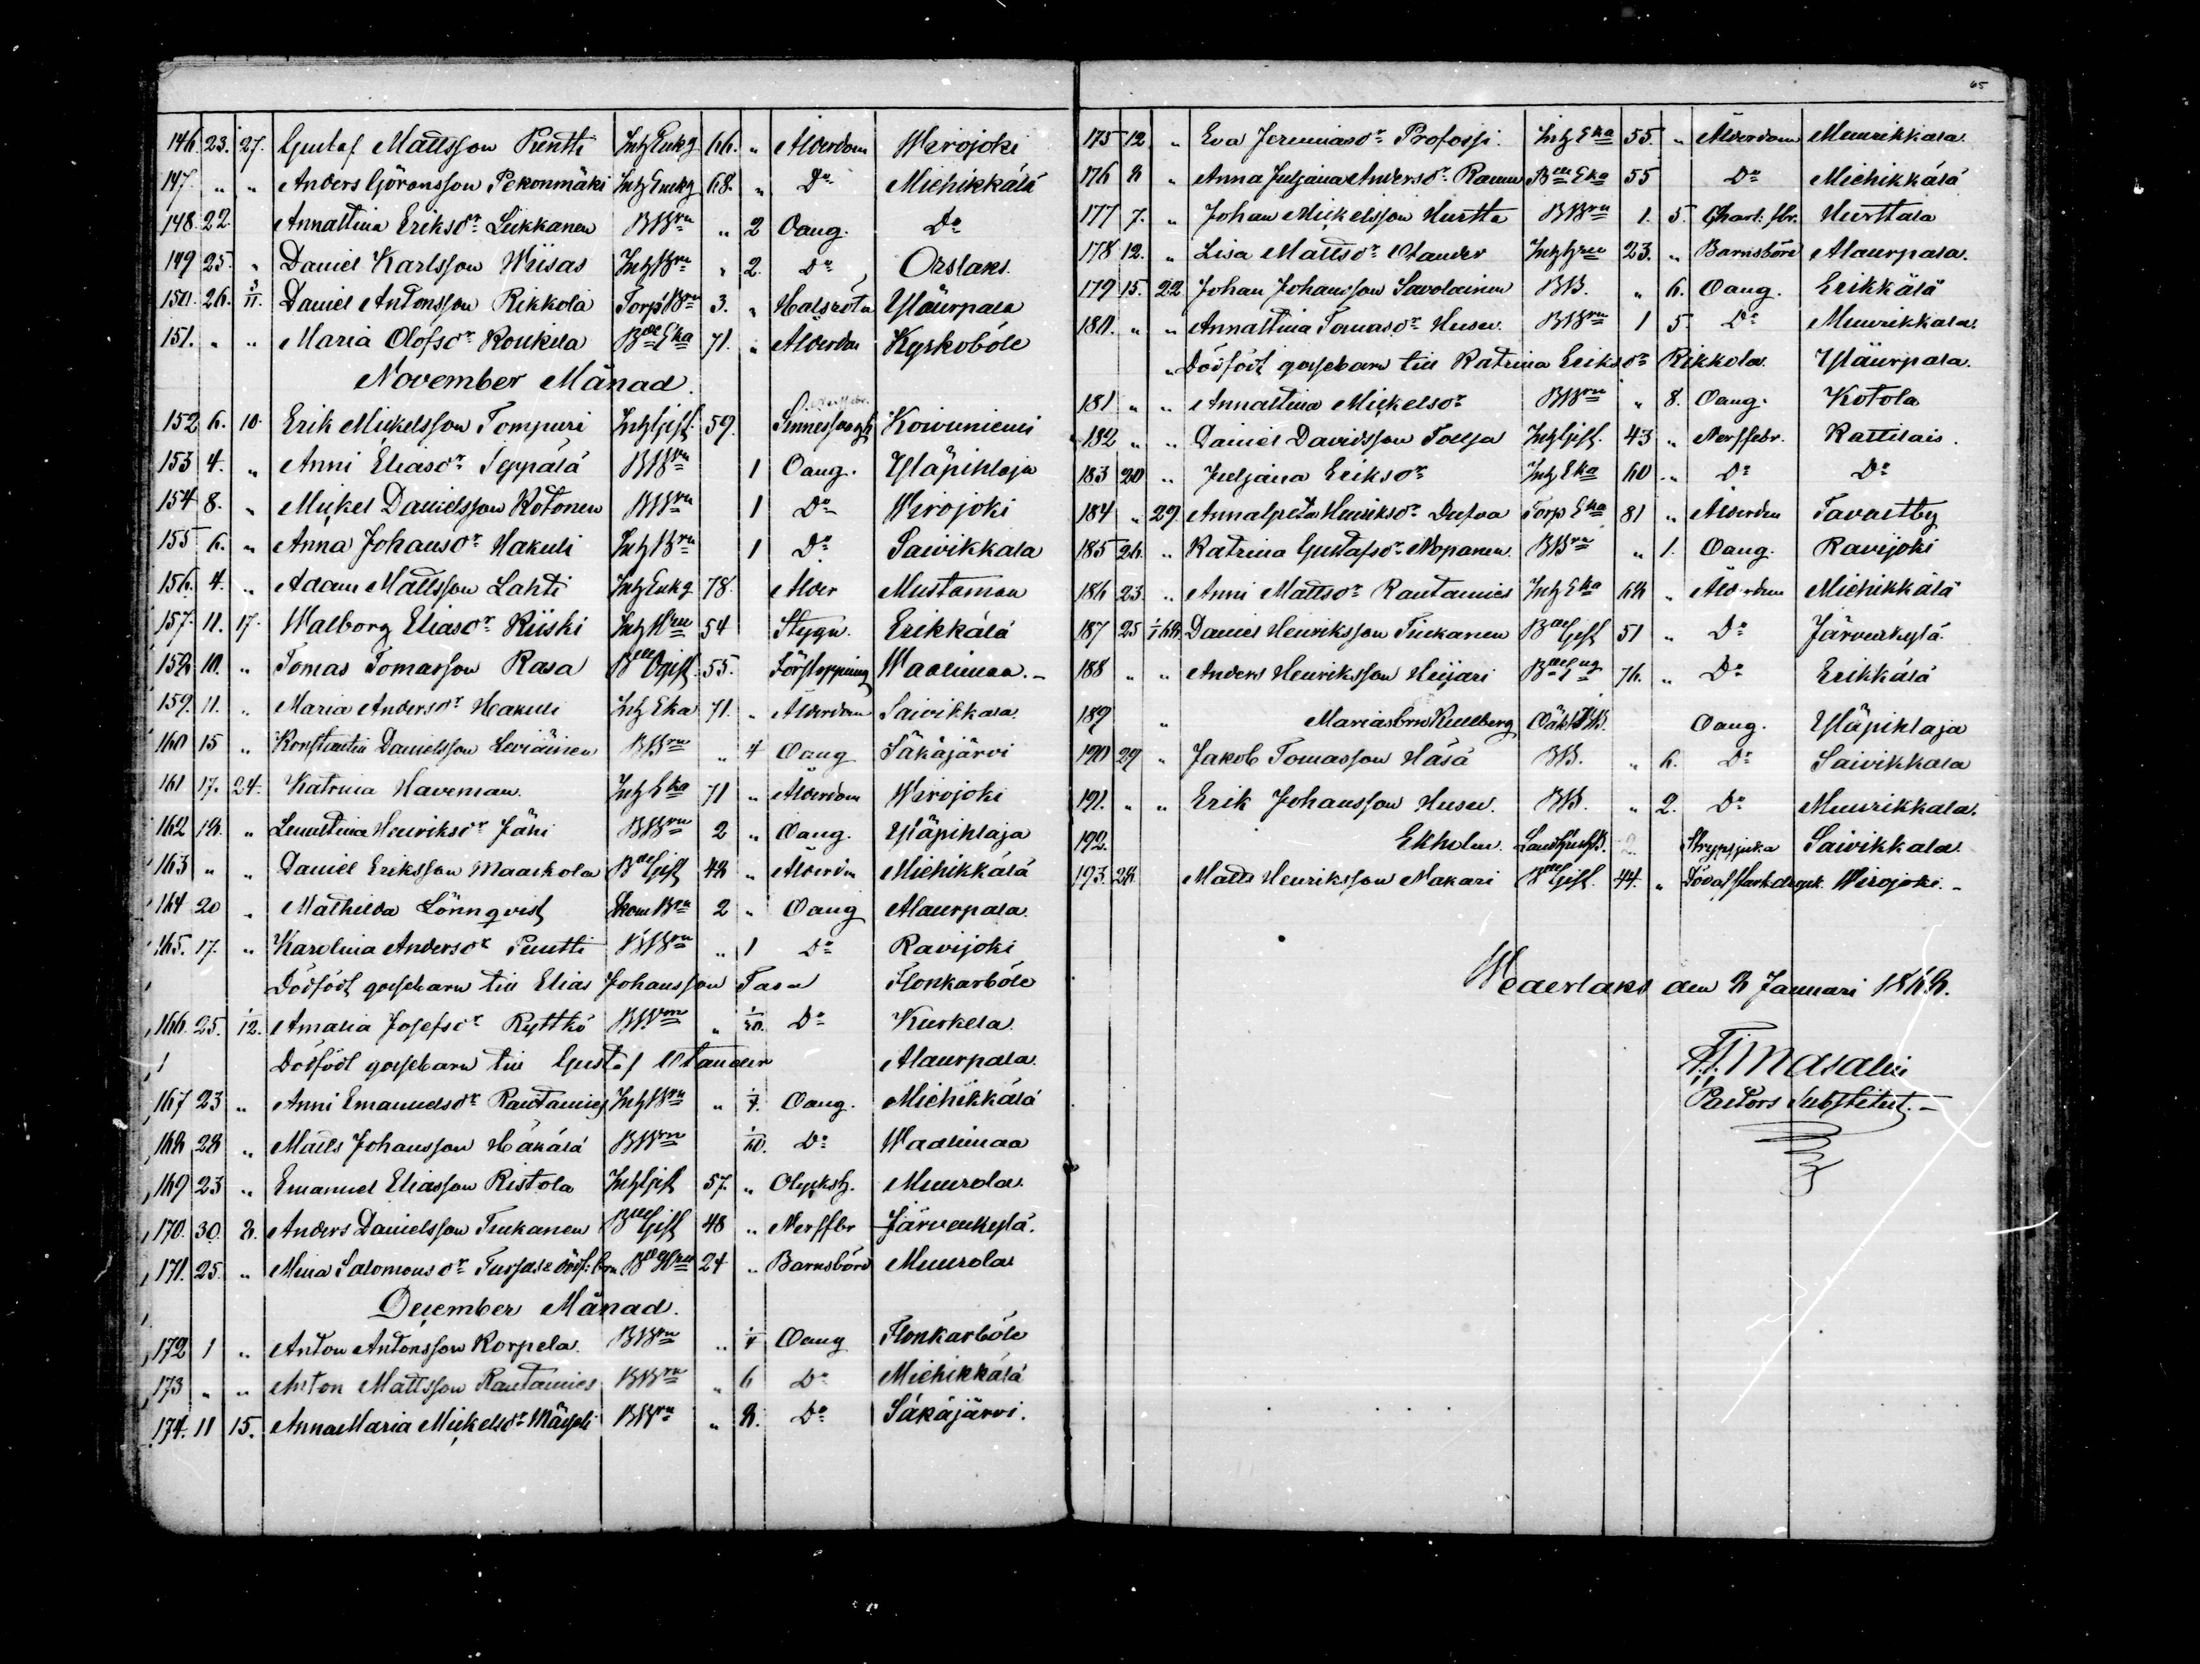 146. 23. 27. Gustaf Mattsson Pentti Inh Enkg 66. " Ålderdom Wirojoki
147. " " Anders Göransson Pekonmäki Inh Enkg 68. " Do Miehikkälä
148. 22. Annastina Eriksdr Liikkanen BBrn " 2 Oang. Do
149 25. " Daniel Karlsson Wiisas Inh Brn " 2. Do Orslaks.
150. 26. 3/11. Daniel Antonsson Rikkola Torp Brn 3. " Halsröta Yläurpala
151. " " Maria Olofsdr Koukila Bde Eka 71. " Ålderdom Kyrkoböle
November Månad.
152 6. 10. Erik Mickelsson Tompuri Inh Gift. 59. Koivuniemi
153 4. " Anni Eliasdr Seppälä BBrn 1 Oang. Yläpihlaja
154 8. " Mickel Danielsson Kotonen BBrn 1 Do Wirojoki
155 6. " Anna Johansdr Hakuli Inh Brn 1 Do Saivikkala
156. 4. " Adam Mattsson Lahti Inh Enkg 78. Ålder Mustamaa
157. 11. 17. Walborg Eliasdr Kiiski Inh Hru 54 Stygn. Erikkälä
158 10. " Tomas Tomasson Rasa Bde Ogift. 55. Förstoppning Waalimaa. -
159. 11. " Maria Andersdr Hakuli Inh Eka 71. " Ålderdom Saivikkala.
160 15 " Konstantin Danielsson Leviäinen BBrn " 4 Oang Säkäjärvi
161 17. 24. Katrina Haveman. Inh Eka 71 " Ålderdom Wirojoki
162 18. " Lenastina Henriksdr Jäni BBrn 2 " Oang. Yläpihlaja
163 " " Daniel Eriksson Maarkola Bde Gift 48 " Ålderdm Miehikkälä
164 20 " Mathilda Lönnqvist Skom Brn 2 " Oang Alaurpala.
165. 17. " Karolina Andersdr Pentti BBrn " 1 Do Ravijoki
Dödfödt gossebarn till Elias Johansson Tasa Flonkarböle
166. 25. 1/12. Amalia Josefsdr Ryttkö BBrn " 1/30. Do Kurkela.
Dödfödt gossebarn till Gustaf Olander Alaurpala.
167 23 " Anni Emanuelsdr Rautamies Inh Brn " 1/4. Oang. Miehikkälä
168 28 " Matts Johansson Häkälä BBrn 1/60. Do Waalimaa
169 23 " Emanuel Eliasson Ristola Inh Gift 57. " Olycksh. Muurola
170. 30. 8. Anders Danielsson Tiukanen Bde Gift 48 " Nerffbr Järvenkylä.
171. 25. " Mina Salomonsdr Turjase dödf: brn Bde Hru 24 " Barnsbörd Muurola
December Månad.
172 1 " Anton Antonsson Korpela. BBrn " 1/4 Oang Flonkarböle
173 " " Anton Mattsson Rautamies BBrn " 6 Do Miehikkälä
174. 11 15. Anna Maria Mickelsdr BBrn " 8. Do Säkäjärvi.
65
175 12. " Eva Jeremiasdr Profossi. Inh Eka 55. " Ålderdom Muurikkala.
176 8 " Anna Juljana Andersdr Raunu Bde Eka 55 Do Miehikkälä
177 7. " Johan Mickelsson Hurtta BBrn 1. 5. Charl: fbr. Hurttala
178 12. " Lisa Mattsdr Olander Inh Hru 23. " Barnsbörd Alaurpala.
179 15. 22 Johan Johansson Savolainen BB. " 6. Oang. Erikkälä
180. " " Annastina Tomasdr Husu. BBrn 1 5 Do Muurikkala.
" Dödfödt gossebarn till Katrina Eriksdr Rikkola. Yläurpala.
181 " " Annastina Mickelsdr BBrn " 8. Oang. Kotola
182 " " Daniel Davidsson Tolja Inh Gift. 43 " Nerffebr. Kattilais.
183 20 " Juljana Eriksdr Inh Eka 60 " Do Do
184 " 29 Annalysa Henriksdr Dufva Torp Eka 81 " Ålderdm Tavastby
185 26. " Katrina Gustafsdr Nopanen. BBrn " 1. Oang. Ravijoki
186 23. " Anni Mattsdr Rautamies Inh Eka 68 " Ålderdm Miehikkälä
187 25 1/1 68. Daniel Henriksson Tiukanen Bde Gift 51 " Do Järvenkylä.
188 " " Anders Henriksson Heijari Bde Eng 76. " Do Erikkälä
189 " Marias brn Kullberg Oäkt BB. Oang. Yläpihlaja
190 29 " Jakob Tomasson Häsä BB. " 6. Do Saivikkala
191. " " Erik Johansson Husu. BB. " 2. Do Muurikkala.
192. Ekholm. 2 Strypsjuka Saivikkala.
193. 28. Matts Henriksson Makari Bde Gift. 44. " Död af starkdryck. Wirojoki. -
Wederlaks den 8 Januari 1868.
F. J. Masalin
Pastors Substitut. -